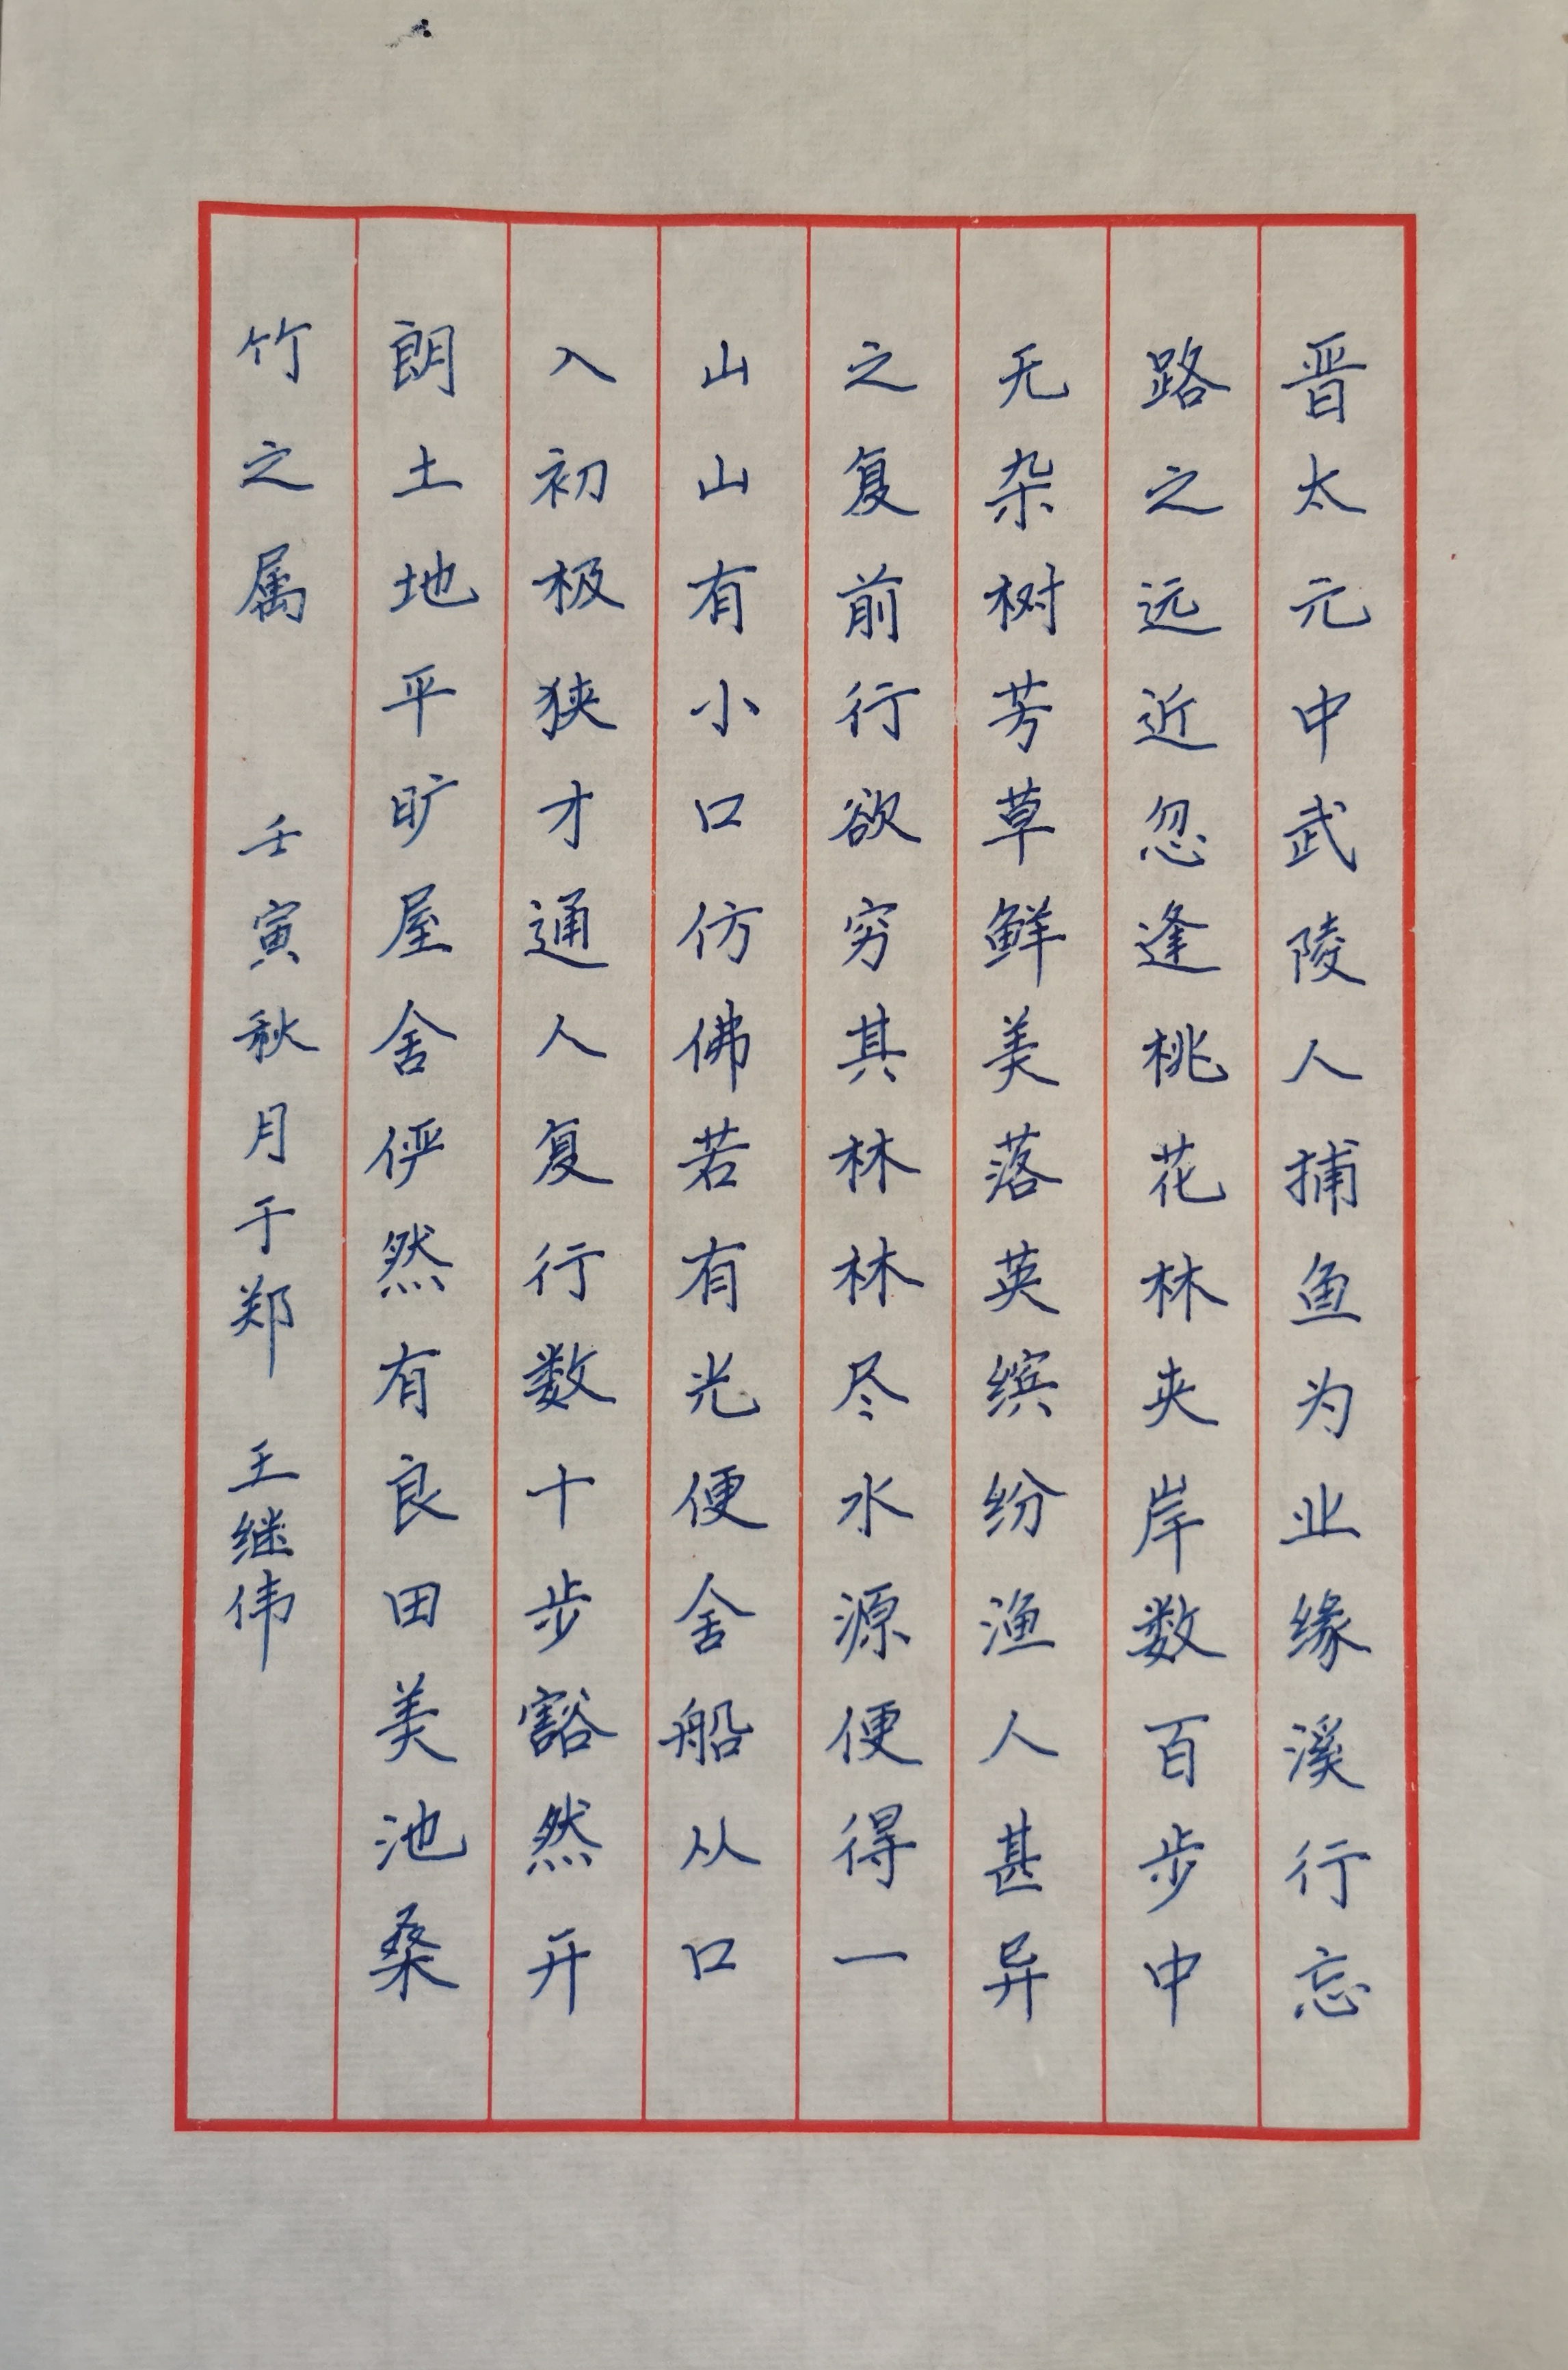 晋太元中武陵人捕鱼为业缘溪行忘
路之远近忽逢桃花林夹岸数百步中
无杂树芳草鲜美落英缤纷渔人甚异
之复前行欲穷其林林尽水源便得一
山山有小口仿佛若有光便舍船从口
入初极狭才通人复行数十步豁然开
朗土地平旷屋舍俨然有良田美池桑
竹之属 壬寅秋月于郑 王继伟